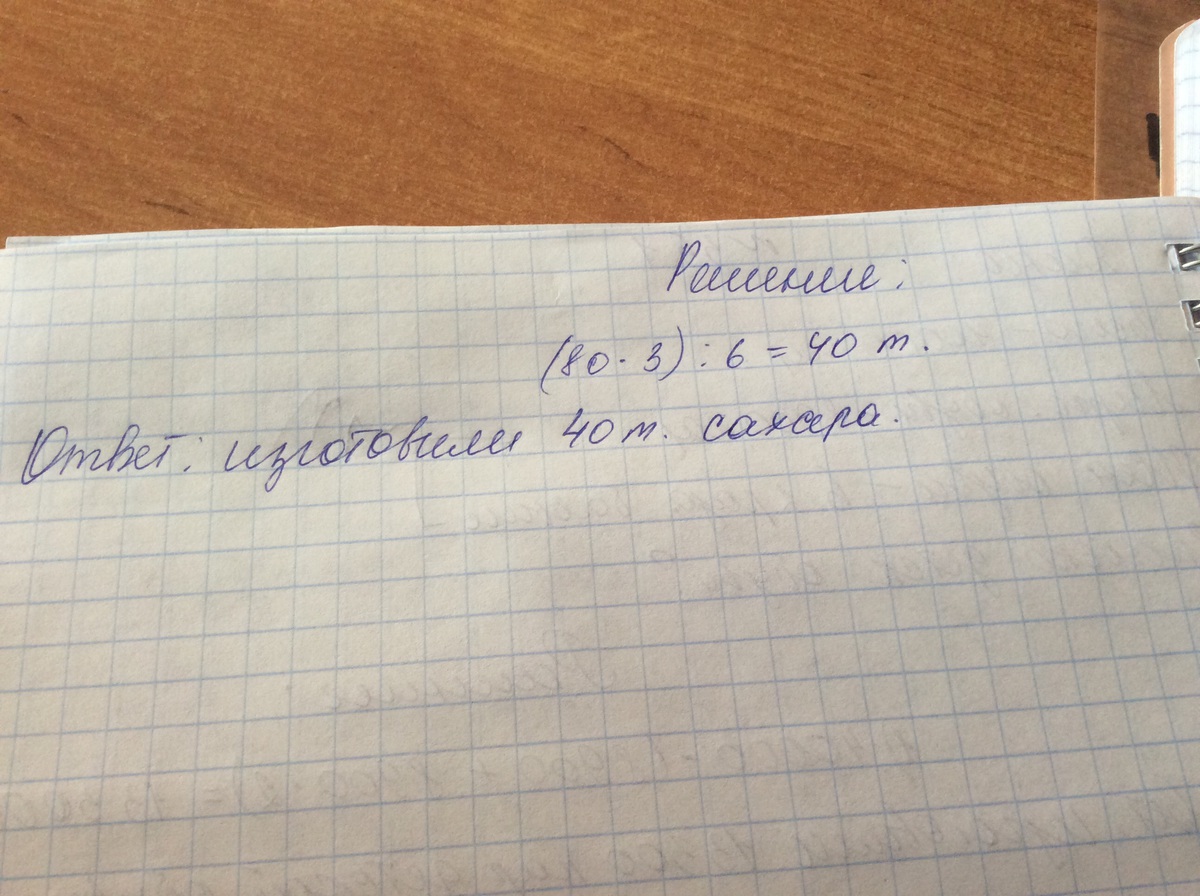 Решение:
(80 · 3) : 6 = 40 т.
Ответ: изготовили 40 т. сахара.